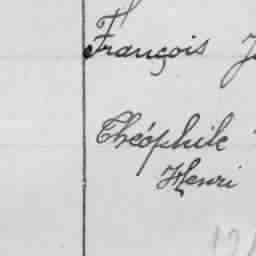 François
Théophile
Henri